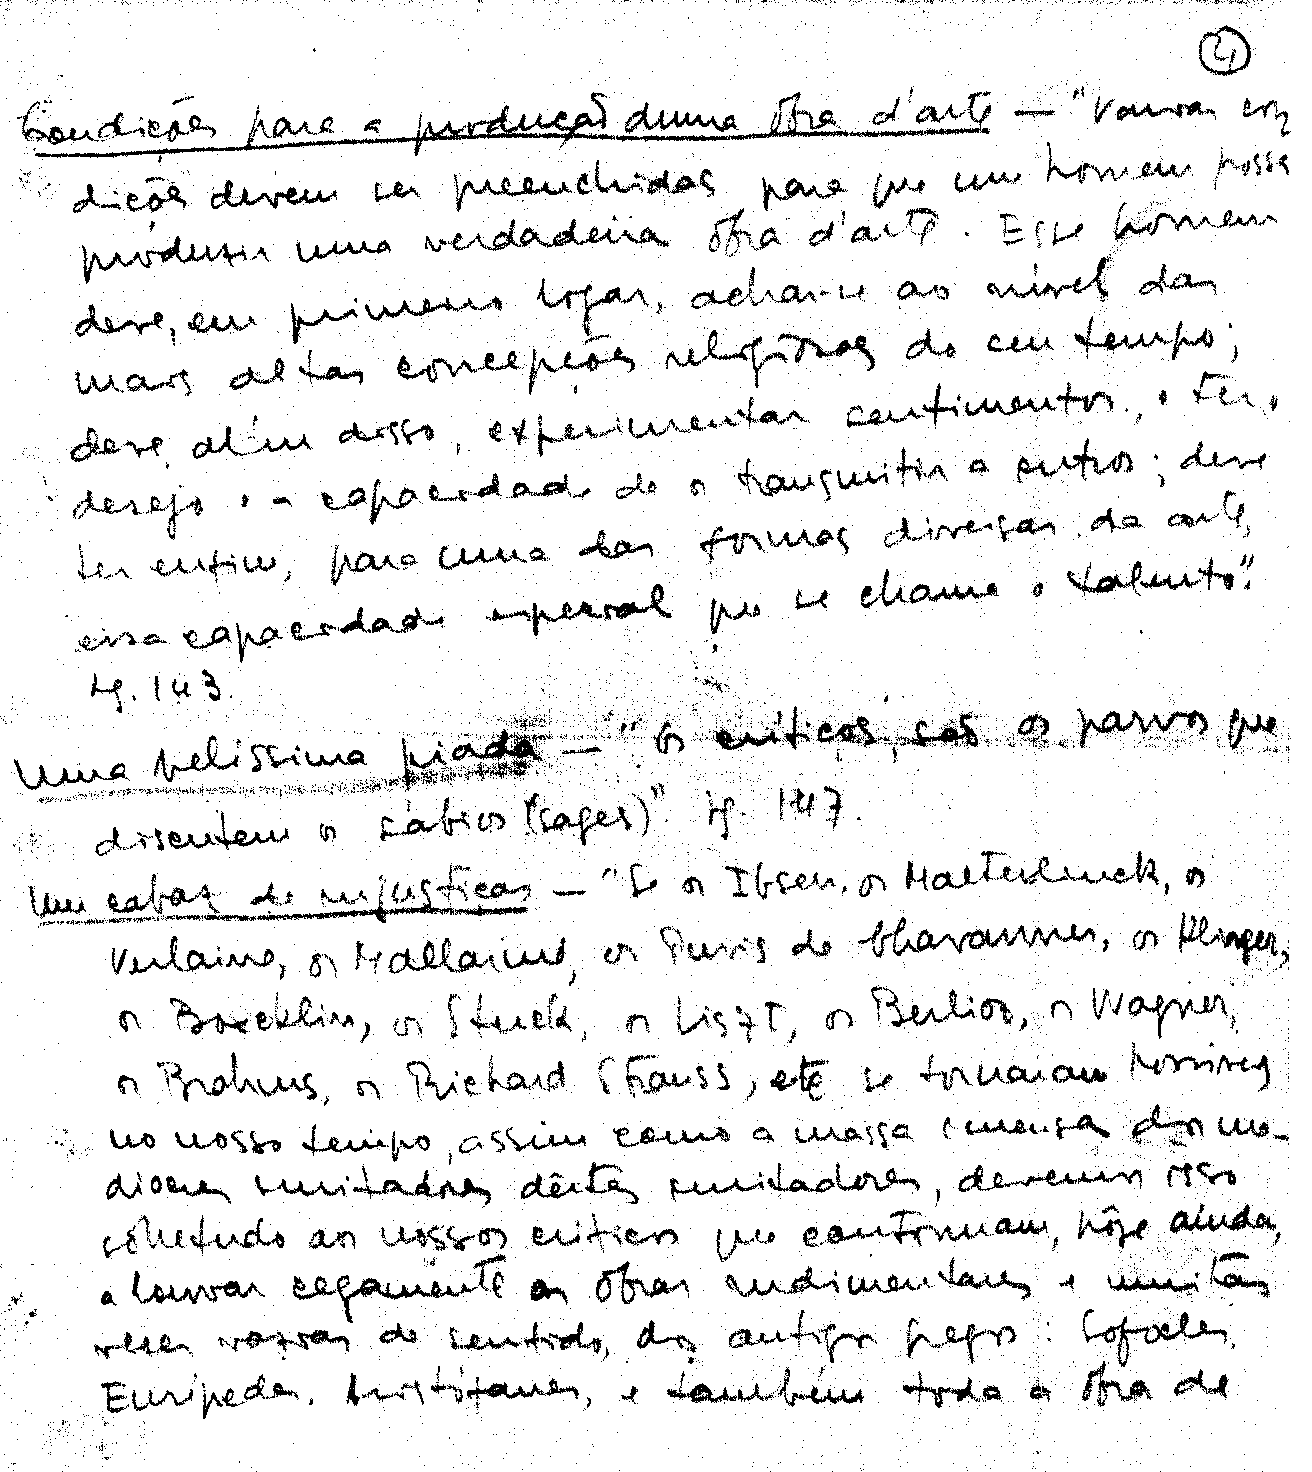 4
Condições para a produção duma obra d'arte — "Varias con
dições devem ser preenchidas para que um homem possa
produzir uma verdadeira obra d'arte. Esse homem
deve, em primeiro logar, achar-se ao nivel das
mais altas concepções religiosas do seu tempo;
deve, além disso, experimentar sentimentos, e ter o
desejo e a capacidade de os transmitir a outros; deve
ter enfim, para uma das formas diversas da arte,
essa capacidade especial que se chama o talento".
pg. 143.
Uma belissima piada — "Os criticos, são os parvos que
discutem os sábios (sages)". pg. 147.
Um cabaz de injustiças — "Se os Ibsen, os Maeterlinck, os
Verlaine, os Mallarmé, os Puvis de Chavannes, os Klinger,
os Boecklin, os Stuck, os Liszt, os Berlioz, os Wagner,
os Brahms, os Richard Strauss, etc se tornaram possiveis
no nosso tempo, assim como a massa imensa dos me-
diocres imitadores dêstes imitadores, devemos isso
sobretudo aos nossos criticos que continuam, hoje ainda,
a louvar cegamente as obras rudimentares e muitas
vezes vazias de sentido, dos antigos gregos: Sofocles,
Euripedes, Aristófanes, e também toda a obra de